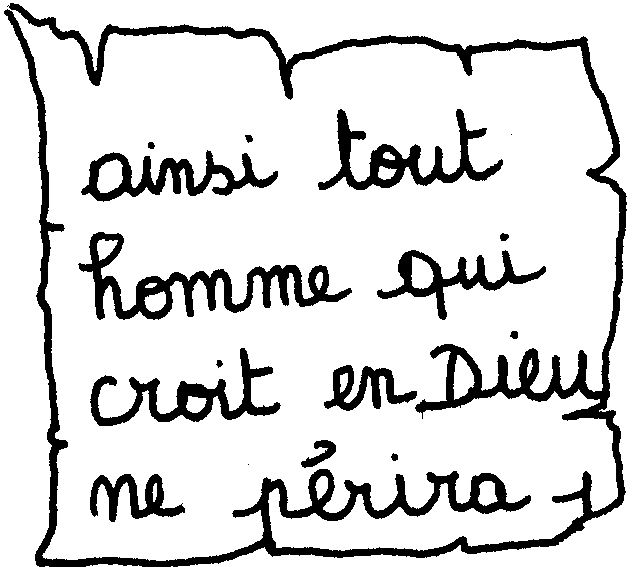 ainsi tout
homme qui
croit en Dieu
ne périra